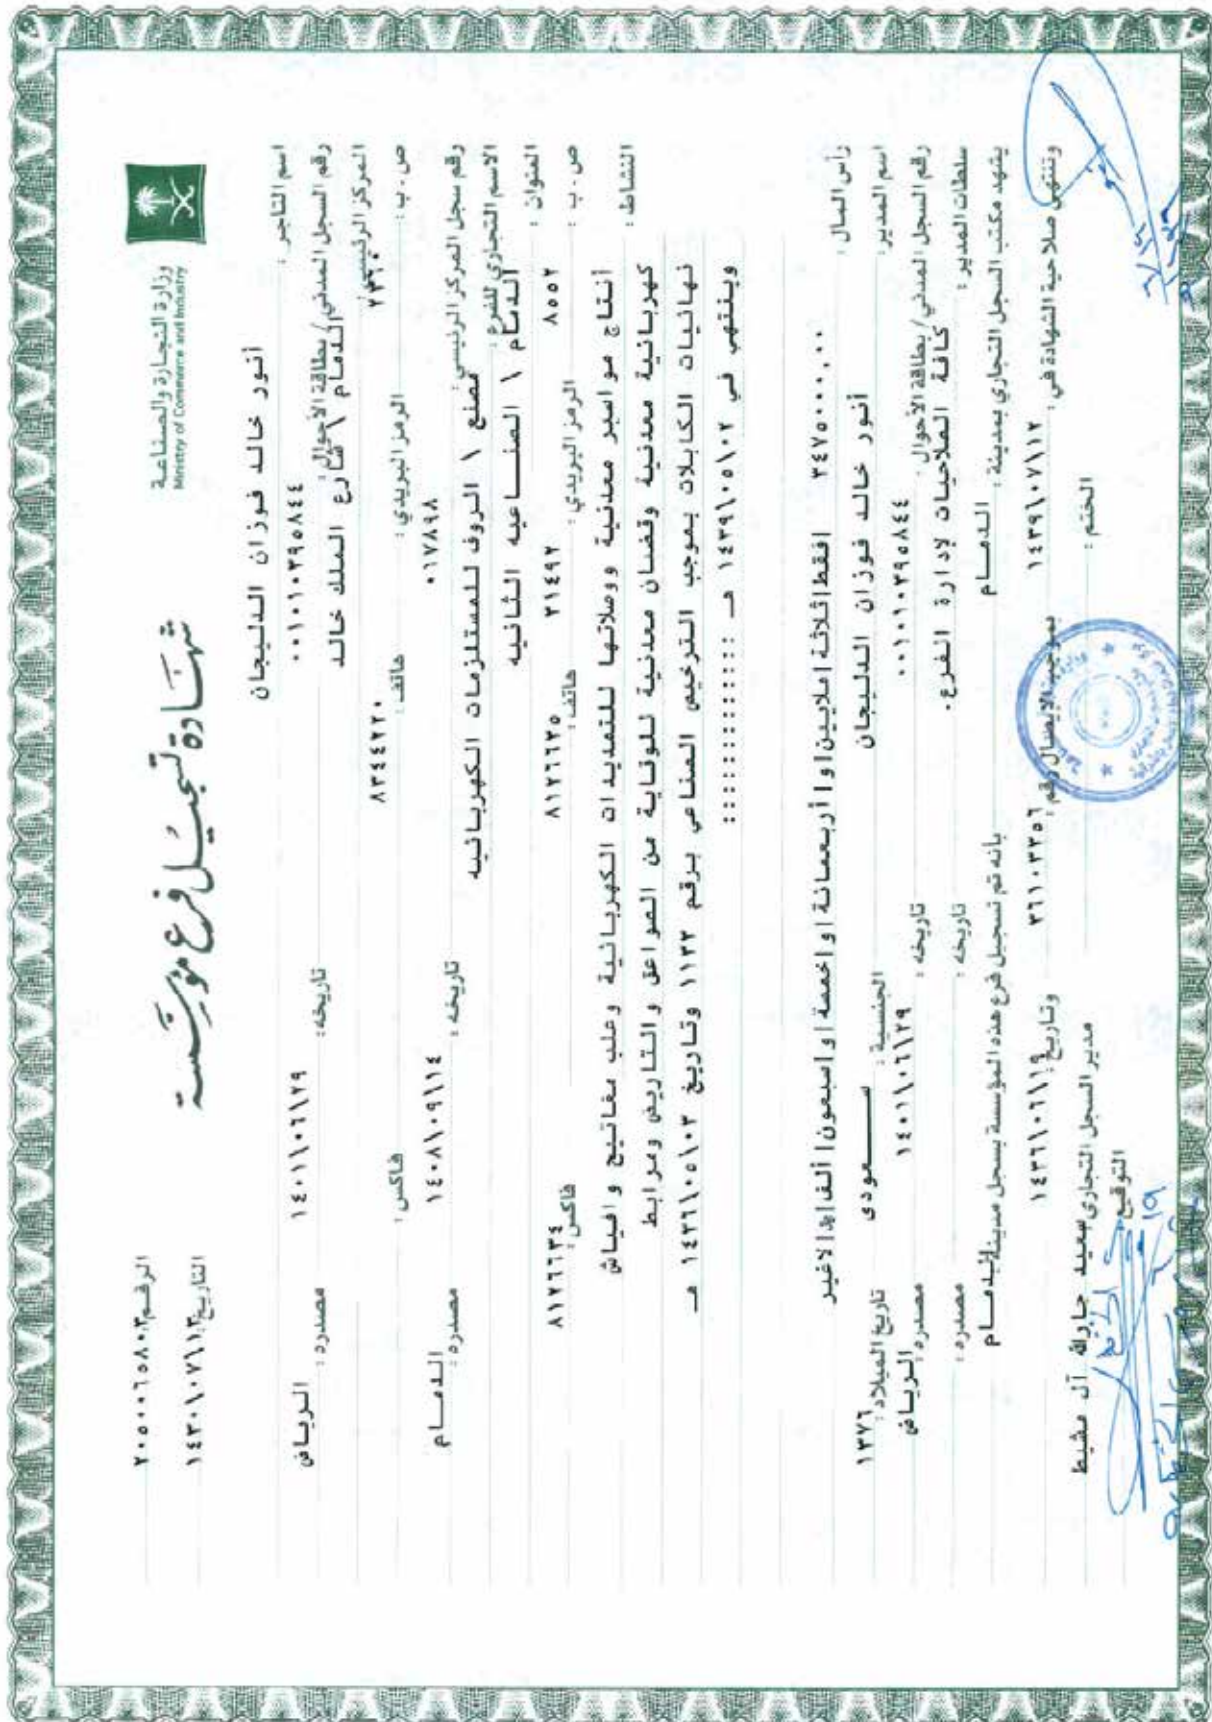 وزارة التجارة والصناعة
Ministry of Commerce and Industry
شهادة تسجيل فرع مؤسسة
الرقم: ٢٠٥٠٠٦٥٨٠٣
التاريخ: ١٤٣٠\٠٧\١٣
اسم التاجر: أنور خالد فوزان الدليجان
رقم السجل المدني/بطاقة الأحوال: ٠٠١٠١٠٣٩٥٨٤٤ تاريخه: ١٤٠١\٠٦\٢٩ مصدره: الرياض
المركز الرئيسي: الدمام \ شارع الملك خالد
ص.ب: ٢٣٦٠ الرمز البريدي: هاتف: ٨٣٤٤٢٢٠ فاكس:
رقم سجل المركز الرئيسي: ٠١٧٨٩٨ تاريخه: ١٤٠٨\٠٩\١٤ مصدره: الدمام
الاسم التجاري للفرع: مصنع \ الروف للمستلزمات الكهربائيه
العنوان: الدمام \ الصناعيه الثانيه
ص.ب: ٨٥٥٢ الرمز البريدي: ٣١٤٩٢ هاتف: ٨١٢٦٦٢٥ فاكس: ٨١٢٦٦٣٤
النشاط: أنتاج مواسير معدنية ووصلاتها للتمديدات الكهربائية وعلب مفاتيح وافياش
كهربائية معدنية وقضبان معدنية للوقاية من المواعق والتاريض ومرابط
نهائيات الكابلات بموجب الترخيص الصناعي برقم ١١٢٢ وتاريخ ١٤٣٦\٠٥\٠٣ هـ
وينتهي في ١٤٣٩\٠٥\٠٢ هـ ::::::::::::
رأس المال: ٣٤٧٥٠٠٠,٠٠ افقط اثلاثة املايين او ا أربعمائة او اخمسة او اسبعون ا ألف اﻫ ا لاغير
اسم المدير: أنور خالد فوزان الدليجان الجنسية: سعودى تاريخ الميلاد: ١٣٧٦
رقم السجل المدني/بطاقة الأحوال: ٠٠١٠١٠٣٩٥٨٤٤ تاريخه: ١٤٠١\٠٦\٢٩ مصدره: الرياض
سلطات المدير: كافة الصلاحيات لإدارة الفرع. تاريخه: مصدره:
يشهد مكتب السجل التجاري بمدينة: الدمام بأنه تم تسجيل فرع هذه المؤسسة بسجل مدينة: الدمام
وتنتهي صلاحية الشهادة في: ١٤٣٩\٠٧\١٢ بموجب الإيصال رقم: ٣٦١٠٣٢٥٦ وتاريخ: ١٤٣٦\٠٦\١٩
الختم: مدير السجل التجاري سعيد جارالله آل مشيط
التوقيع